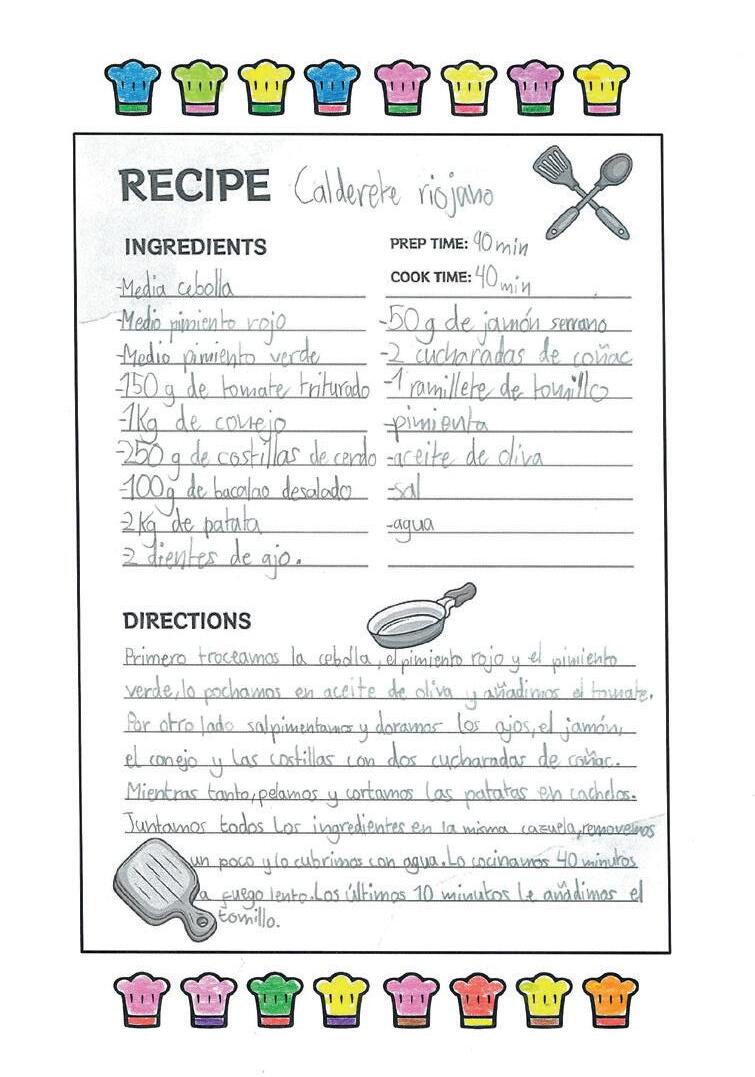 RECIPE Caldereke riojano
INGREDIENTS
-Media cebolla
-Medio pimiento rojo
-Medio pimiento verde
-150 g de tomate triturado
-1Kg de conejo
-250 g de costillas de cerdo
-100g de bacalao desalado
2Kg de patata
2 dientes de ajo.
PREP TIME: 90 min
COOK TIME: 40 min
-50 g de jamón serrano
-2 cucharadas de coñac
-1 ramillete de tomillo
-pimienta
-aceite de oliva
-sal
-agua
DIRECTIONS
Primero troceamos la cebolla, el pimiento rojo y el pimiento
verde, lo pochamos en aceite de oliva y añadimos el tomate.
Por otro lado salpimentamos y doramos los ajos, el jamón,
el conejo y las costillas con dos cucharadas de coñac.
Mientras tanto, pelamos y cortamos las patatas en cachelos.
Juntamos todos los ingredientes en la misma cazuela, removemos
un poco y lo cubrimos con agua. Lo cocinamos 40 minutos
a fuego lento. Los últimos 10 minutos le añadimos el
tomillo.